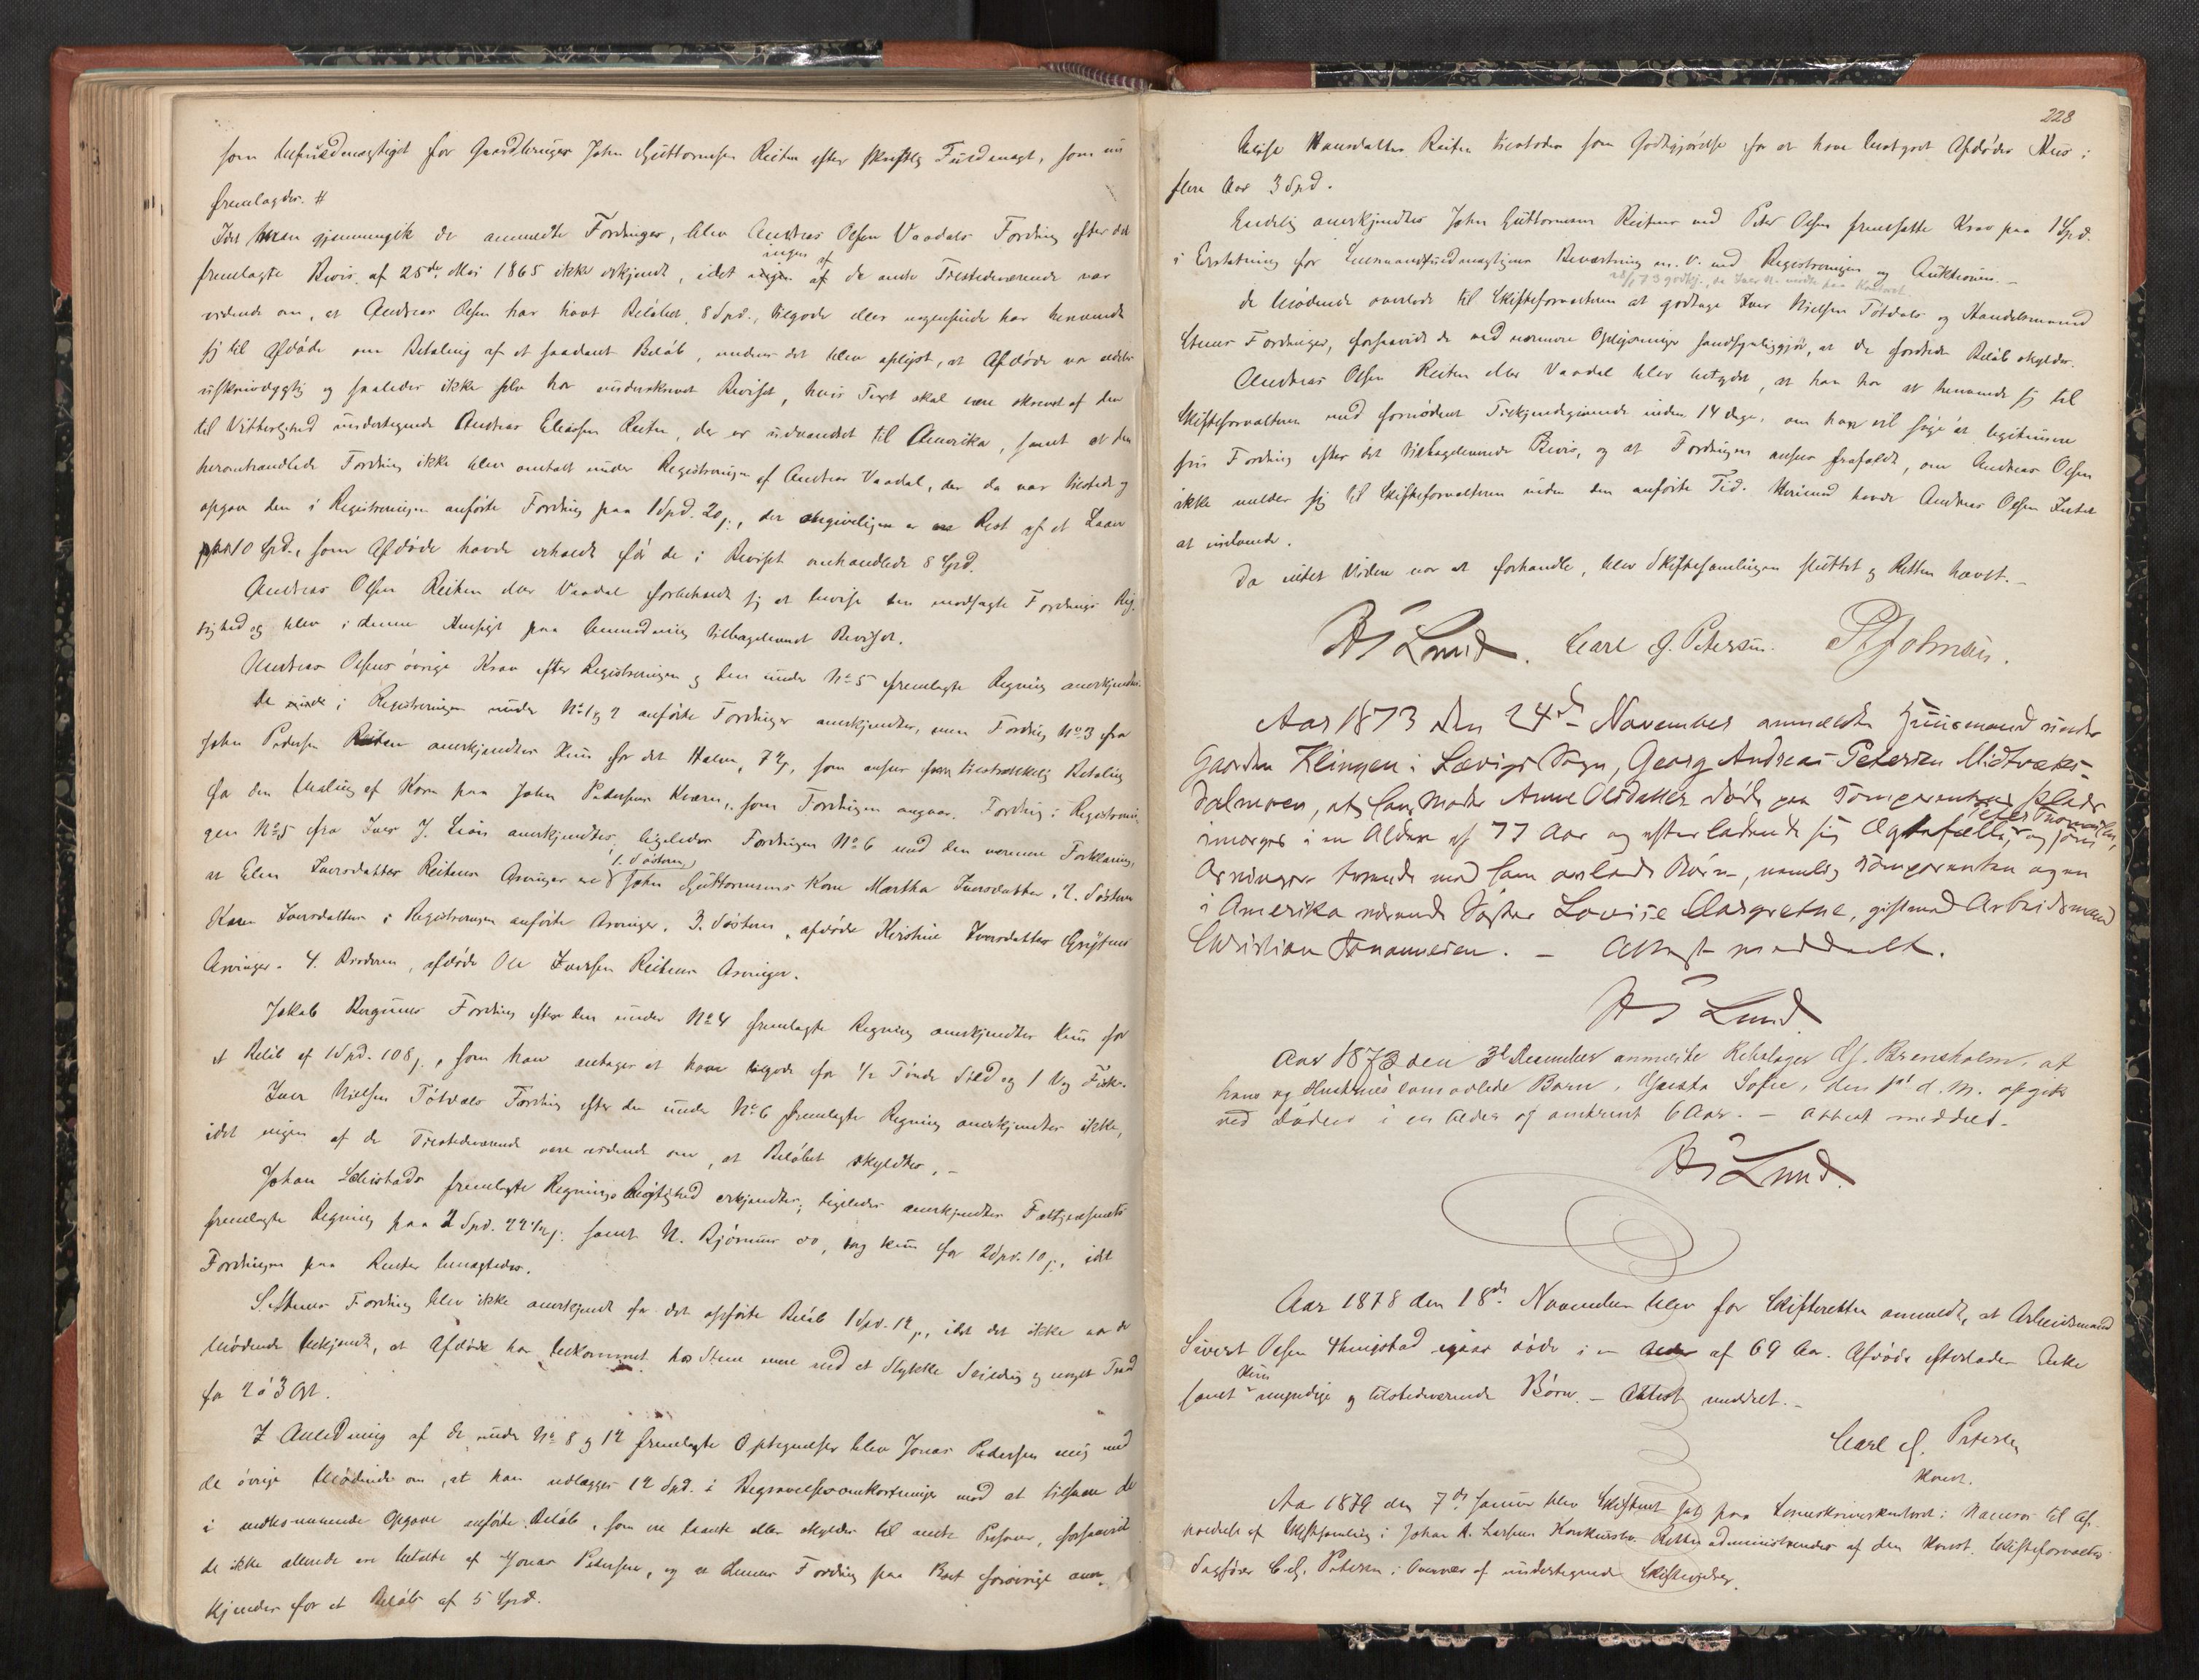 som befuldmægtiget for Gaardbruger John Guttormsen Reiten efter skriftlig Fuldmagt, som nu
fremlagdes. #
Idet man gjennemgik de anmeldte Fordringer, blev Andreas Olsen Vaadals Fordring efter det
ingen af
fremlagte Bevis af 25de Mai 1865 ikke erkjendt, idet ingen af de andre Tilstedeværende var
vidende om, at Andreas Olsen har havt Beløbet, 8 Spd., tilgode eller nogensinde har henvendt
sig til Afdøde om Betaling af et saadant Beløb, medens det blev oplyst, at Afdøde var
uskrivekyndig og saaledes ikke selv har underskrevet Beviset, hvis Text skal være skrevet af den
til Vitterlighed undertegnede Andreas Eliassen Reiten, der er udvandret til Amerika, samt at den
heromhandlede Fordring ikke blev omtalt under Registreringen af Andreas Vaadal, der da var tilstede og
opgav den i Registreringen anførte Fordring paa 1 Spd. 20 s., der angiveligen er Rest af et Laan
paa 10 Spd., som Afdøde havde erholdt før de i Beviset omhandlede 8 Spd.
Andreas Olsen Reiten eller Vaadal forbeholdt sig at bevise den modsagte Fordrings Rig-
tighed og blev i denne Hensigt paa Anmodning tilbageleveret Beviset.
Andreas Olsens øvrige Krav efter Registreringen og den under No 5 fremlagte Regning anerkjendtes.
De i Registreringen under No 1 og 2 anførte Fordringer anerkjendtes, men Fordring No 3 fra
John Pedersen Reiten anerkjendtes kun for det Halve, som ansees som tilstrækkelig Betaling
for den Maling af Korn paa John Pedersens Kværn, som Fordringen angaar. Fordring i Registrerin-
gen No 5 fra Iver J. Lien anerkjendtes, ligeledes Fordringen No 6 med den nærmere Forklaring,
1. Søsteren,
at Elen Iversdatter Reitens Arvinger ere John Guttormsens Kone Martha Iversdatter, 2. Søsteren
Karen Iversdatters i Registreringen anførte Arvinger. 3. Søsteren, afdøde Kirstine Iversdatter
Arvinger. 4. Broderen, afdøde Ole Iversen Reitens Arvinger.
Jakob Fordring efter den under No 4 fremlagte Regning anerkjendtes kun for
et Beløb af 1 Spd. 108 s., som han antages at have tilgode for 1/2 Tønde Sild og 1 Vog Fisk.
Iver Nielsen Tøtdals Fordring efter den under No 6 fremlagte Regning anerkjendtes ikke,
idet ingen af de Tilstedeværende vare vidende om, at Beløbet skyldtes. –
Johan fremlagte Regnings Rigtighed erkjendtes; ligeledes anerkjendtes Fattigvæsenets
fremlagte Regning paa 2 Spd. 22 1/2 s. samt N. Bjørnums do, dog kun for 2 Spd. 10 s., idet
Fordringen paa Renter benægtedes.
S. Steens Fordring blev ikke anerkjendt for det opførte Beløb 1 Spd. 12 s., idet det ikke var de
Mødende bekjendt, at Afdøde har bekommet hos Steen mere end et Stykke Seildug og noget
for 2 à 3 Ort.
I Anledning af de under No 8 og 12 fremlagte Optegnelser blev Jonas Pedersen enig med
de øvrige Mødende om, at han udlægges 12 Spd. i Begravelsesomkostninger mod at tilsvare de
i vedkommende Opgave anførte Beløb, som ere laante eller skyldes til andre Personer, forsaavidt
de ikke allerede ere betalte af Jonas Pedersen, og at dennes Fordring paa Boet forøvrigt aner-
kjendes for et Beløb af 5 Spd.
228
Hansdatter Reiten tilstodes som Godtgjørelse for at have Afdødes Hus i
flere Aar 3 Spd.
Endelig anerkjendtes John Guttormsen Reitens ved Peter Olsen fremsatte Krav paa 1 Spd.
i Erstatning for Lensmandsfuldmægtigens Beværtning m. V. ved Registreringen og Auktionen. –
De Mødende overlode til Skifteforvalteren at godtage Iver Nielsen Tøtdals og Handelsmand
Steens Fordringer, forsaavidt de ved nærmere Oplysninger sandsynliggjør, at de fordrede Beløb skyldes.
Andreas Olsen Reiten eller Vaadal blev betydet, at han har at henvende sig til
Skifteforvalteren med fornødent Tilkjendegivende inden 14 Dage, om han vil søge at legitimere
sin Fordring efter det tilbageleverede Bevis, og at Fordringen ansees frafaldt, om Andreas Olsen
ikke melder sig til Skifteforvalteren inden den anførte Tid. Herimod havde Andreas Olsen Intet
at indvende.
Da intet Videre var at forhandle, blev Skiftesamlingen sluttet og Retten hævet. –
Lund. Carl J. Petersen.
Aar 1873 den 24de November anmeldte Huusmand under
Gaarden Klingen i Sævigs Sogn, Georg Andreas Petersen Midtvæks-
dalmoen, at hans Moder Anne Olsdatter døde paa Comparentens Plads
imorges i en Alder af 77 Aar og efterladende sig Ægtefælle, og som
Arvinger tvende med ham avlede Børn, namlig Comparenten og en
i Amerika værende Søster Lovise Margrethe, gift med Arbeidsmand
Christian Johannesen. – Attest meddeelt.
Lund.
Aar 1873 den 3d December anmeldte Rebslager Brensholm, at
hans og Hustrues sam avlede Barn, Sofie, den 1st d. M. afgik
ved Døden i en Alder af omtrent 6 Aar. – Attest meddelt.
Lund.
Aar 1878 den 18de November blev for Skifteretten anmeldt, at Arbeidsmand
Sivert Olsen igaar døde i en Alder af 69 Aar. Afdøde efterlader Enke
Kun
samt myndige og tilstedeværende Børn. – Attest meddelt. –
Carl J. Petersen
Konst.
Aar 1879 den 7de Januar blev Skifteret sat paa Sorenskriverkontoret i Namsos til Af-
holdelse af Skiftesamling i Johan A. Larsens Konkursbo. Retten administreredes af den Konst. Skifteforvalter
Sagfører C. J. Petersen i Overvær af undertegnede Skiftevidner.